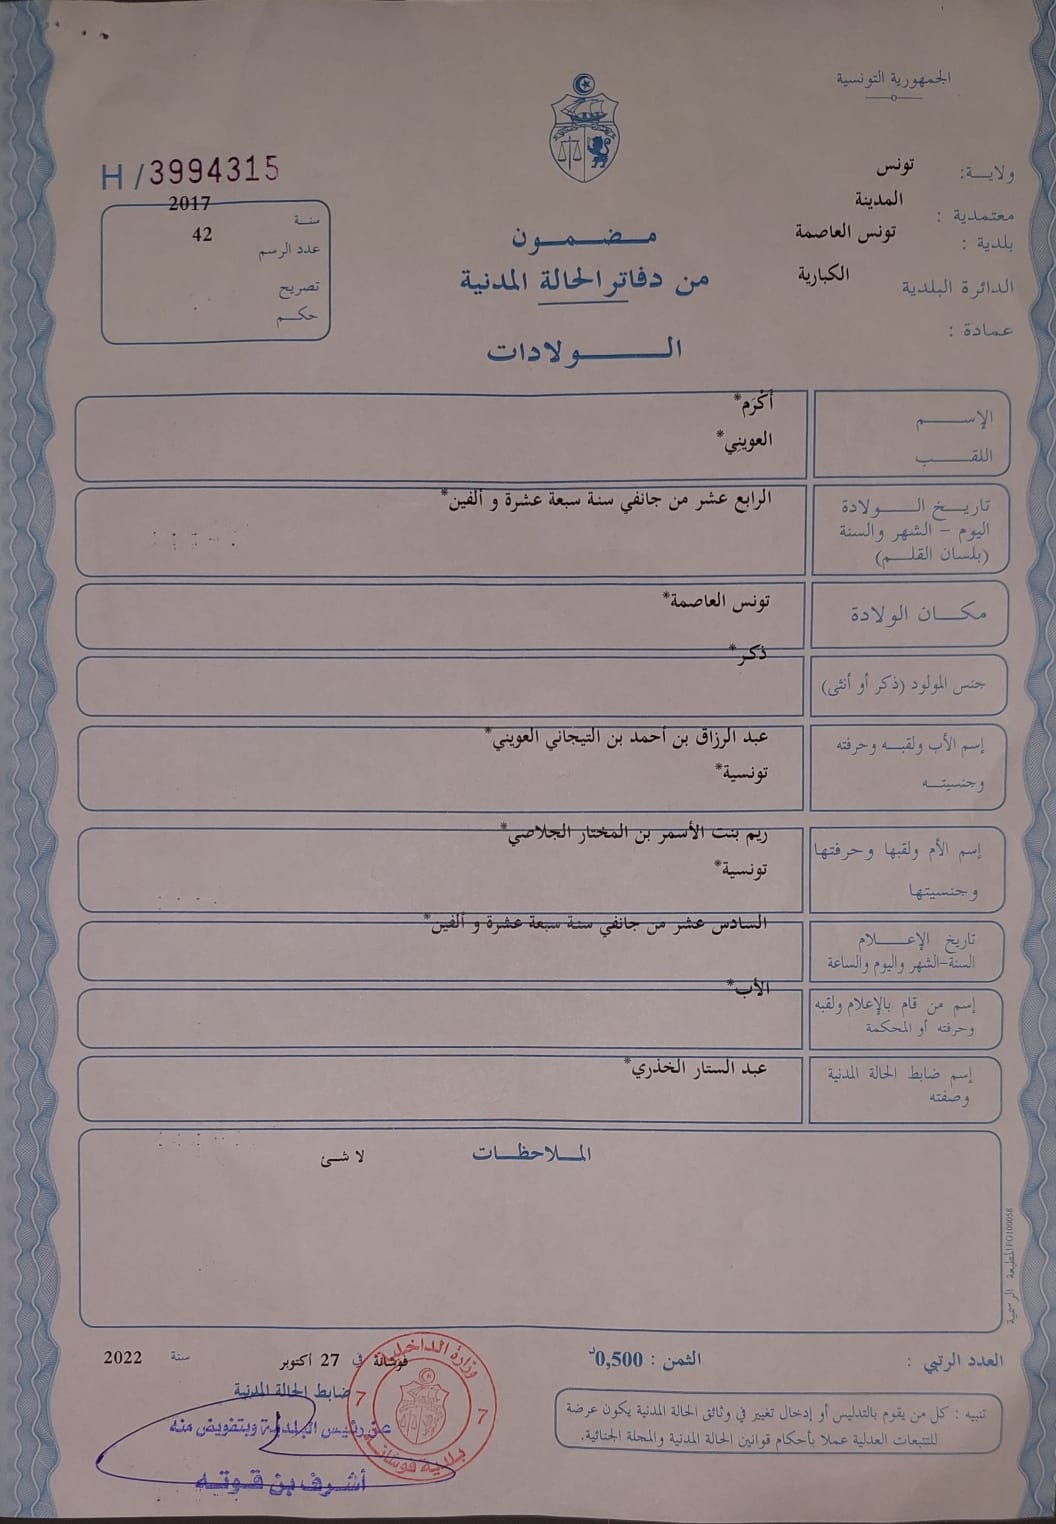 الجمهورية التونسية
ولاية: تونس
معتمدية : المدينة
بلدية : تونس العاصمة
الدائرة البلدية الكبارية
عمادة :
H/3994315
سنة 2017
عدد الرسم 42
تصريح
حكم
مضمون
من دفاتر الحالة المدنية
الولادات
الإسم أَكْرَم*
اللقب العويني*
تاريخ الولادة الرابع عشر من جانفي سنة سبعة عشرة و ألفين*
اليوم - الشهر والسنة
(بلسان القلم)
مكان الولادة تونس العاصمة*
جنس المولود (ذكر أو أنثى) ذكر*
إسم الأب ولقبه وحرفته عبد الرزاق بن أحمد بن التيجاني العويني*
وجنسيته تونسية*
إسم الأم ولقبها وحرفتها ريم بنت الأسمر بن المختار الجلاصي*
وجنسيتها تونسية*
تاريخ الإعلام السادس عشر من جانفي سنة سبعة عشرة و ألفين*
السنة-الشهر واليوم والساعة
إسم من قام بالإعلام ولقبه الأب*
وحرفته أو المحكمة
إسم ضابط الحالة المدنية عبد الستار الخذري*
وصفته
الملاحظات
لا شئ
المطبعة الرسمية FG100058
العدد الرتبي :
الثمن : 0,500د
فوسانة في 27 أكتوبر سنة 2022
ضابط الحالة المدنية
عن رئيس البلدية وبتفويض منه
أشرف بن قوته
وزارة الداخلية
7 7
بلدية فوسانة
تنبيه : كل من يقوم بالتدليس أو إدخال تغيير في وثائق الحالة المدنية يكون عرضة
للتتبعات العدلية عملا بأحكام قوانين الحالة المدنية والمجلة الجنائية.